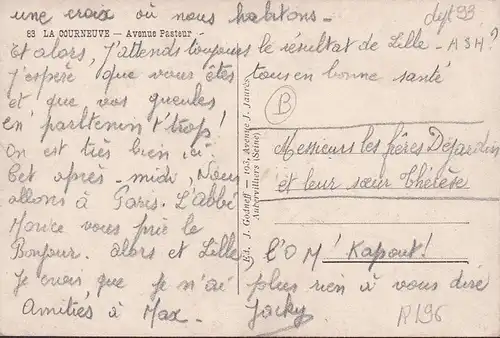 une croix où nous habitons -
dept 93
83 LA COURNEUVE — Avenue Pasteur
Et alors, J'attends toujours le résultat de Lille - ASH?
J'espère que vous êtes tous en bonne santé
et que vos gueules
en partent t'trop!
On est très bien ici
Cet après-midi, Nous
allons à Paris. L'abbé
Morice vous prie le
Bonjour. alors et Lille
Je crois que je n'ai plus rien à vous dire
Amitiés à Max. Jacky
B
Messieurs les frères Dejardin
et leur sœur Thérèse
l'O M' Kapout!
R196
Ed. J. Godneff — 193, Avenue J. Jaurès
Aubervilliers (Seine)